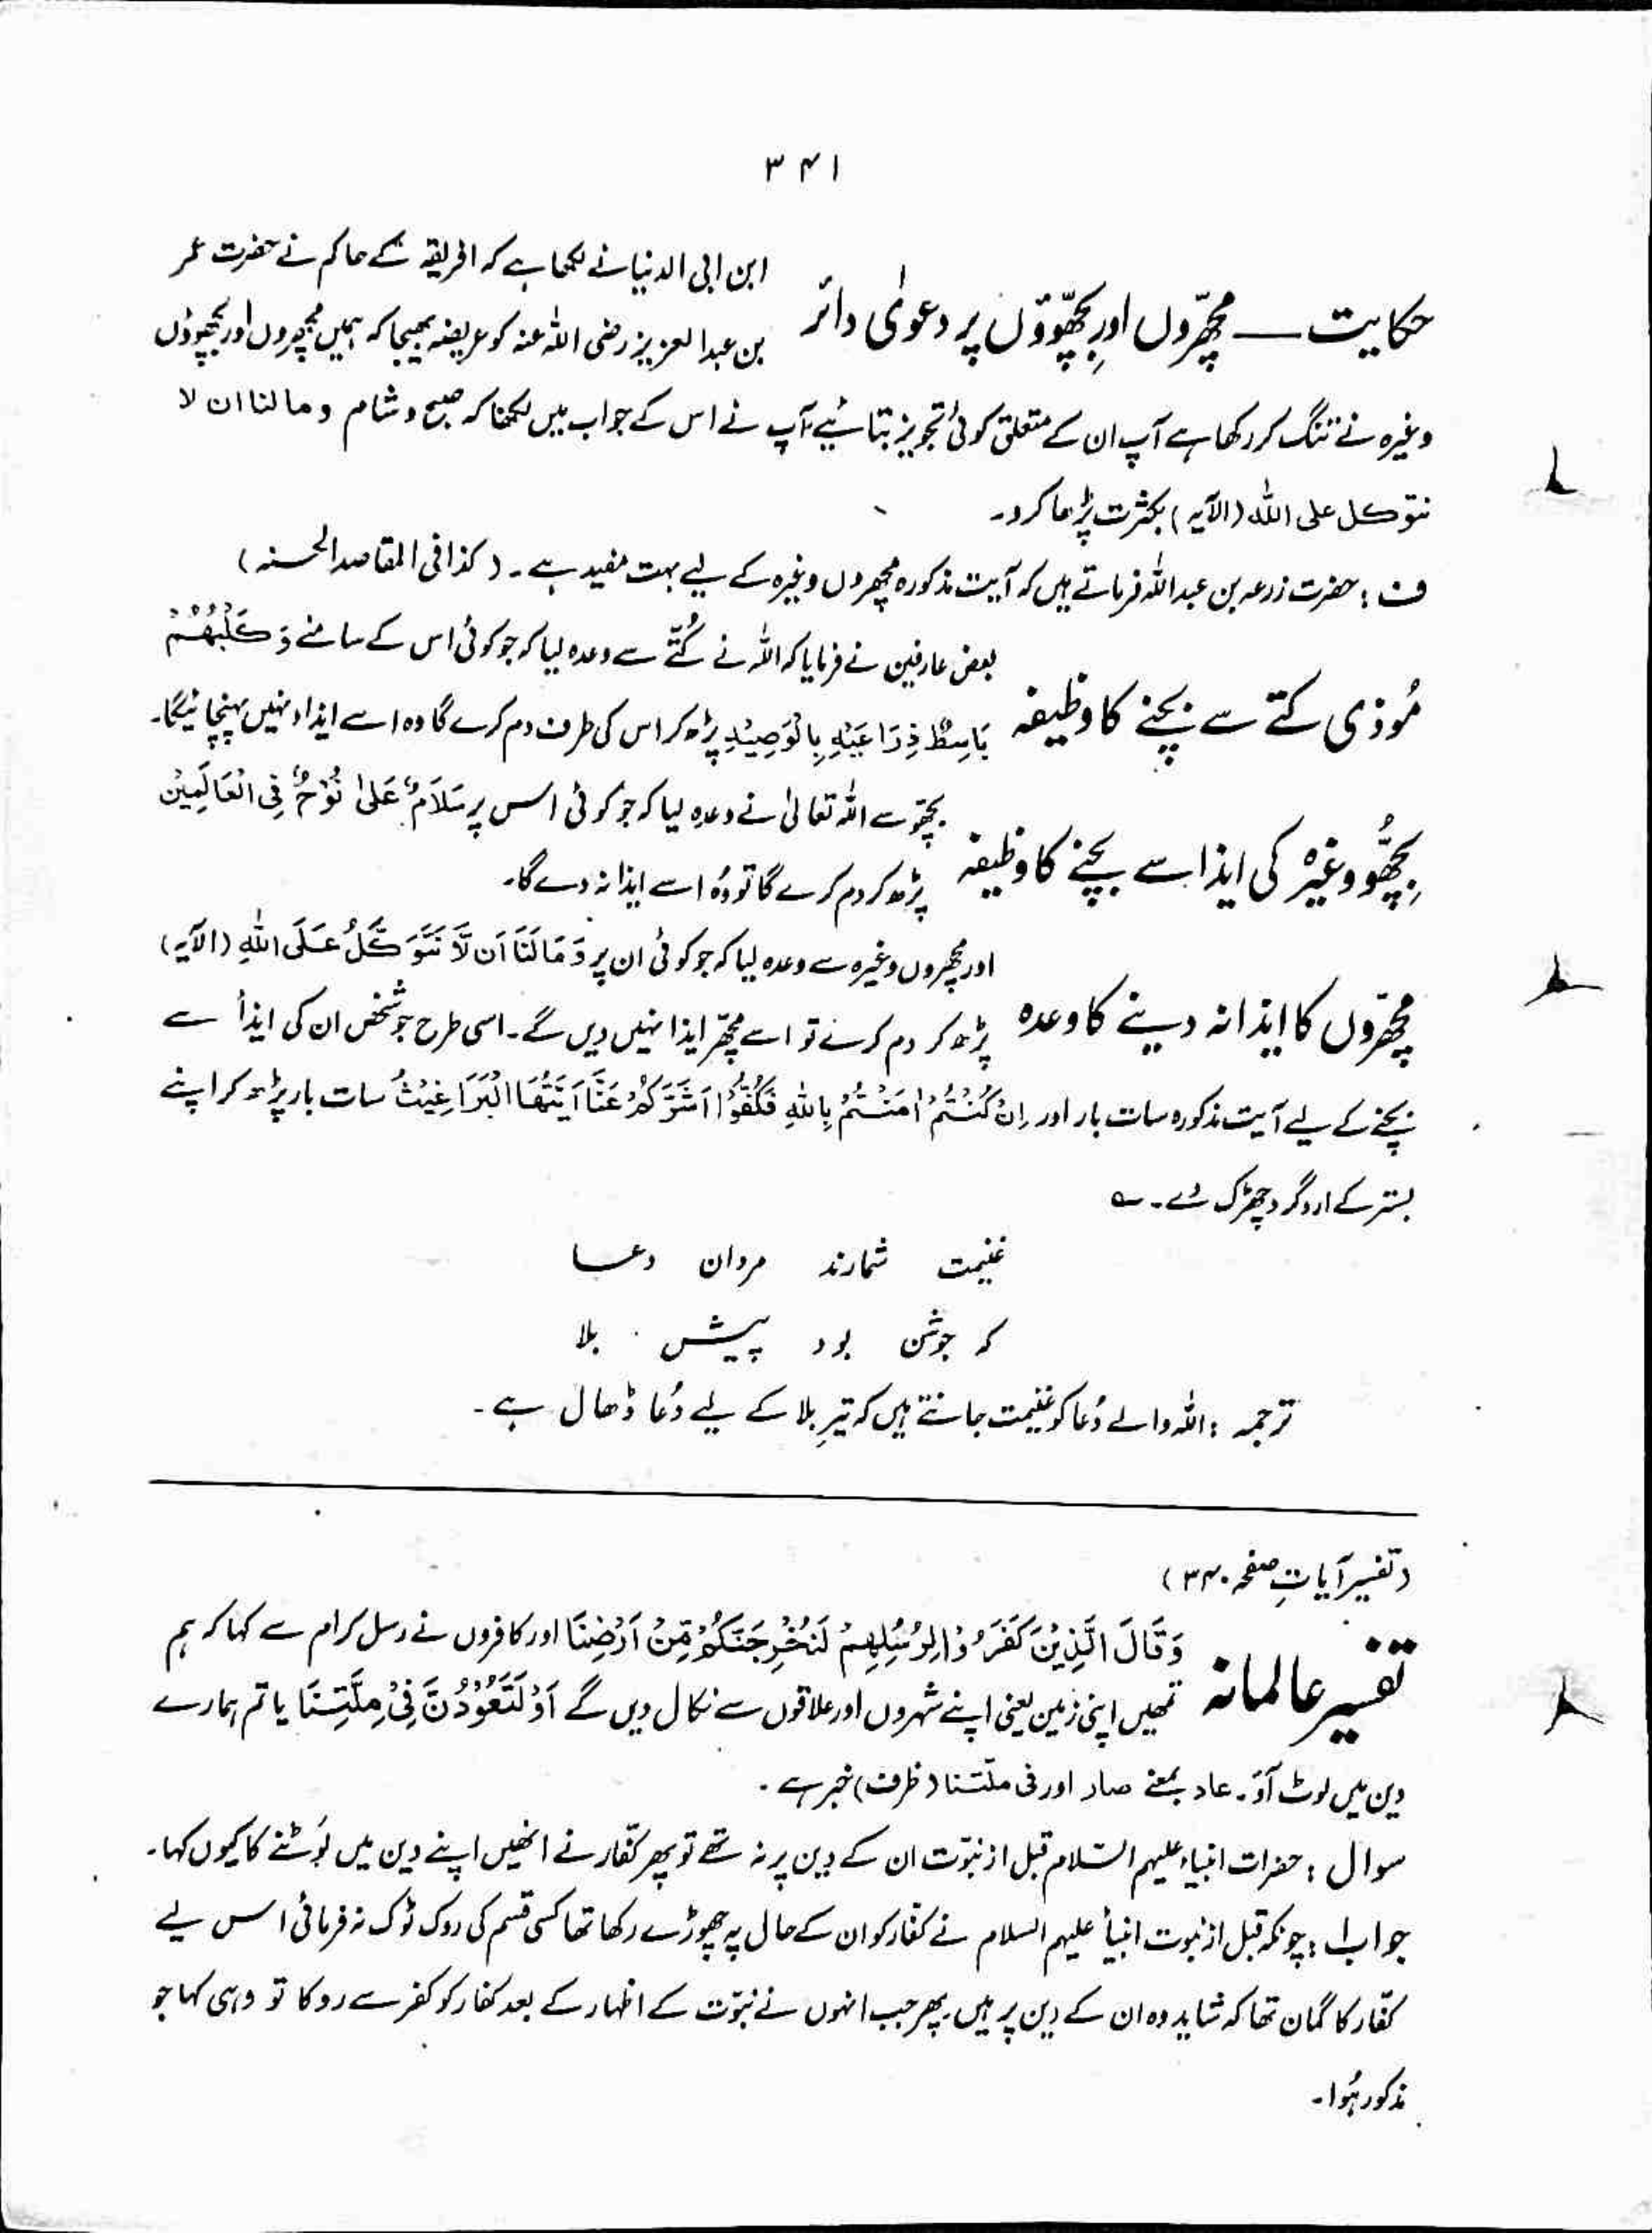 ۳۴۱
حکایت — مچھّروں اور بچھّوؤں پر دعویٰ دائر
ابن ابی الدنیا نے لکھا ہے کہ افریقہ کے حاکم نے حضرت عمر
بن عبدالعزیز رضی اللہ عنہ کو عریضہ بھیجا کہ ہمیں مچھروں اور بچھوؤں
وغیرہ نے تنگ کر رکھا ہے آپ ان کے متعلق کوئی تجویز بتائیے آپ نے اس کے جواب میں لکھا کہ صبح و شام وما لنا ان لا
نتوکل علی اللہ (الآیہ) بکثرت پڑھا کرو۔
ف : حضرت زرعہ بن عبداللہ فرماتے ہیں کہ آیت مذکورہ مچھروں وغیرہ کے لیے بہت مفید ہے۔ (کذا فی المقاصد الحسنہ)
مُوذی کتے سے بچنے کا وظیفہ
بعض عارفین نے فرمایا کہ اللہ نے کُتّے سے وعدہ لیا کہ جو کوئی اس کے سامنے وَ کَلْبُهُمْ
بَاسِطٌ ذِرَاعَیْهِ بِالْوَصِیْدِ پڑھ کر اس کی طرف دم کرے گا وہ اسے ایذاء نہیں پہنچائیگا۔
بِچھُّو وغیرہ کی ایذا سے بچنے کا وظیفہ
بچھّو سے اللہ تعالیٰ نے وعدہ لیا کہ جو کوئی اس پر سَلَامٌ عَلٰی نُوْحٍ فِی الْعَالَمِیْنَ
پڑھ کر دم کرے گا تو وُہ اسے ایذا نہ دے گا۔
مچھّروں کا ایذا نہ دینے کا وعدہ
اور مچھروں وغیرہ سے وعدہ لیا کہ جو کوئی ان پر وَمَا لَنَا اَنْ لَّا نَتَوَکَّلَ عَلَی اللهِ (الآیہ)
پڑھ کر دم کرے تو اسے مچھّر ایذا نہیں دیں گے۔ اسی طرح جو شخص ان کی ایذا سے
بچنے کے لیے آیت مذکورہ سات بار اور اِنْ کُنْتُمْ اٰمَنْتُمْ بِاللهِ فَکُفُّوْا شَرَّکُمْ عَنَّا اَیَّتُهَا الْبَرَاغِیْثُ سات بار پڑھ کر اپنے
بستر کے اردگرد چھڑک دے۔ ؎
غنیمت شمارند مردان دعا
کہ جوشن بود پیش بلا
ترجمہ : اللہ والے دُعا کو غنیمت جانتے ہیں کہ تیرِ بلا کے لیے دُعا ڈھال ہے۔
(تفسیر آیاتِ صفحہ ۳۴۰)
تفسیر عالمانہ
وَقَالَ الَّذِیْنَ کَفَرُوْا لِرُسُلِهِمْ لَنُخْرِجَنَّکُمْ مِّنْ اَرْضِنَا اور کافروں نے رسل کرام سے کہا کہ ہم
تمھیں اپنی زمین یعنی اپنے شہروں اور علاقوں سے نکال دیں گے اَوْ لَتَعُوْدُنَّ فِیْ مِلَّتِنَا یا تم ہمارے
دین میں لوٹ آؤ۔ عاد بمعنے صار اور فی ملّتنا (ظرف) خبر ہے۔
سوال : حضرات انبیاء علیہم السّلام قبل از نبوّت ان کے دین پر نہ تھے تو پھر کفّار نے انھیں اپنے دین میں لَوٹنے کا کیوں کہا۔
جواب : چونکہ قبل از نبوت انبیاً علیہم السلام نے کفّار کو ان کے حال پہ چھوڑے رکھا تھا کسی قسم کی روک ٹوک نہ فرمائی اس لیے
کفّار کا گمان تھا کہ شاید وہ ان کے دین پر ہیں۔ پھر جب انہوں نے نبوّت کے اظہار کے بعد کفار کو کفر سے روکا تو وہی کہا جو
مذکور ہُوا۔